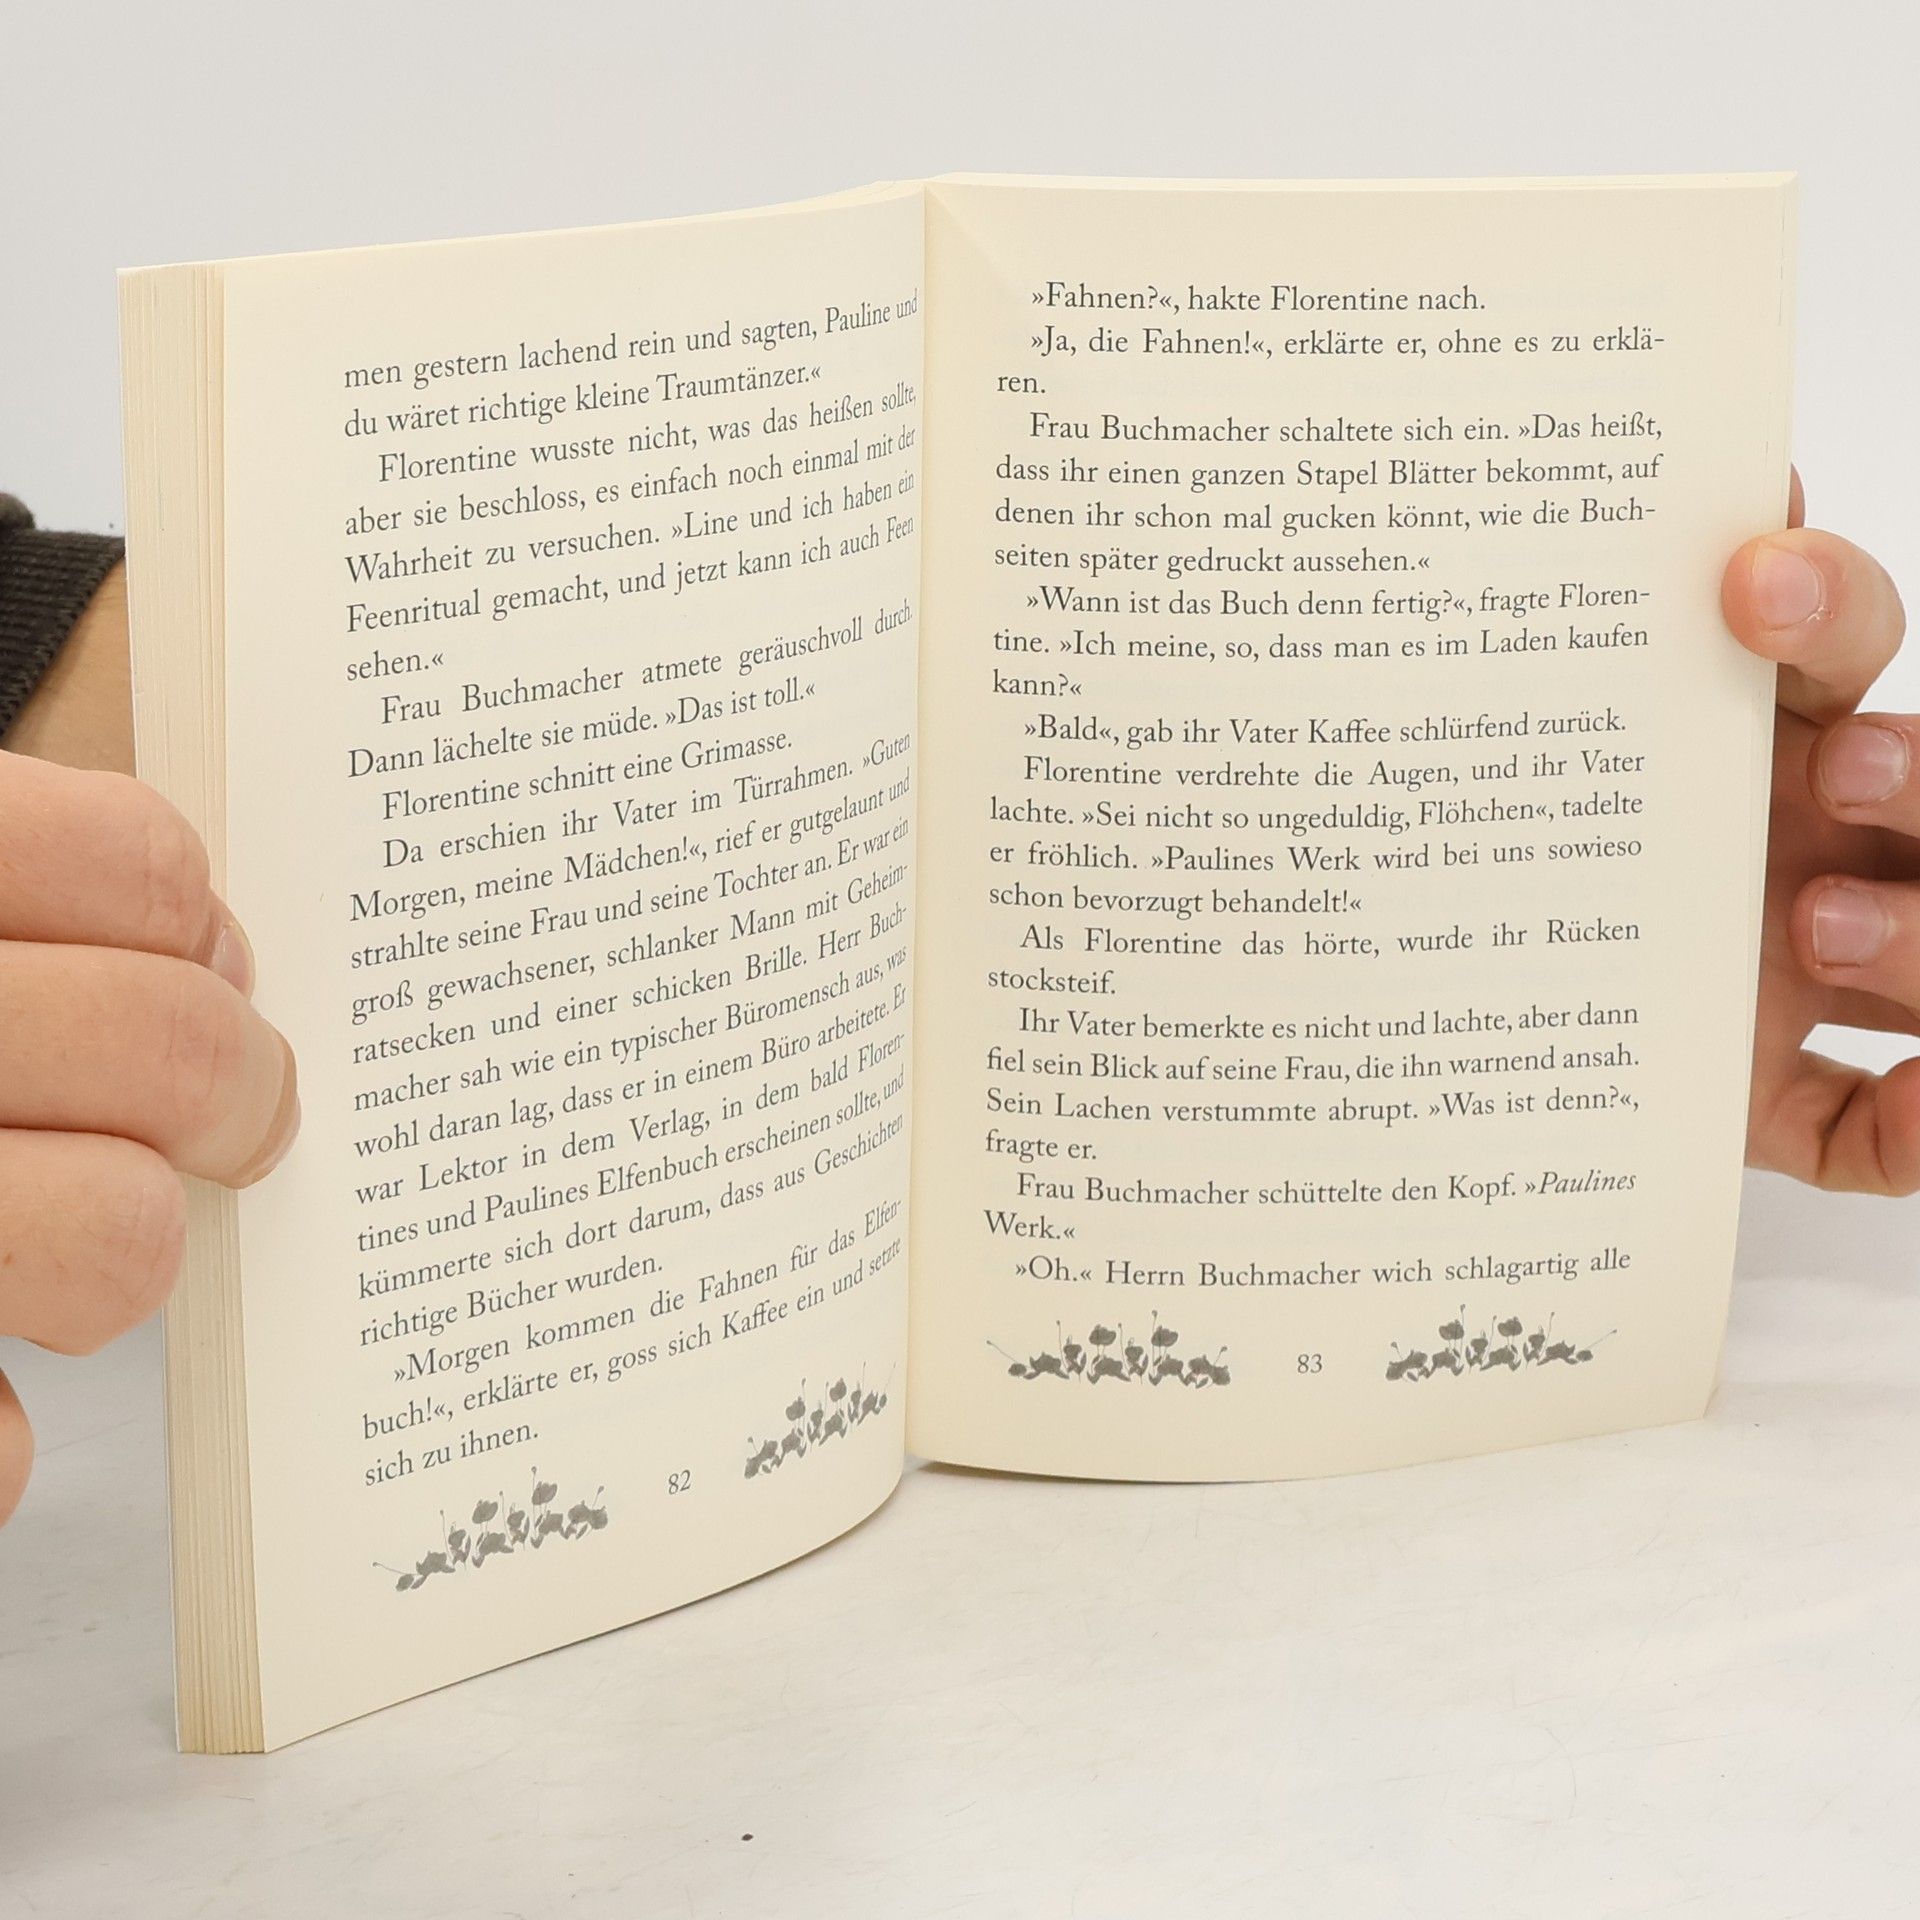 men gestern lachend rein und sagten, Pauline und
du wäret richtige kleine Traumtänzer.«
Florentine wusste nicht, was das heißen sollte,
aber sie beschloss, es einfach noch einmal mit der
Wahrheit zu versuchen. »Line und ich haben ein
Feenritual gemacht, und jetzt kann ich auch Feen
sehen.«
Frau Buchmacher atmete geräuschvoll durch.
Dann lächelte sie müde. »Das ist toll.«
Florentine schnitt eine Grimasse.
Da erschien ihr Vater im Türrahmen. »Guten
Morgen, meine Mädchen!«, rief er gutgelaunt und
strahlte seine Frau und seine Tochter an. Er war ein
groß gewachsener, schlanker Mann mit Geheim-
ratsecken und einer schicken Brille. Herr Buch-
macher sah wie ein typischer Büromensch aus, was
wohl daran lag, dass er in einem Büro arbeitete. Er
war Lektor in dem Verlag, in dem bald Floren-
tines und Paulines Elfenbuch erscheinen sollte, und
kümmerte sich dort darum, dass aus Geschichten
richtige Bücher wurden.
»Morgen kommen die Fahnen für das Elfen-
buch!«, erklärte er, goss sich Kaffee ein und setzte
sich zu ihnen.
82
»Fahnen?«, hakte Florentine nach.
»Ja, die Fahnen!«, erklärte er, ohne es zu erklä-
ren.
Frau Buchmacher schaltete sich ein. »Das heißt,
dass ihr einen ganzen Stapel Blätter bekommt, auf
denen ihr schon mal gucken könnt, wie die Buch-
seiten später gedruckt aussehen.«
»Wann ist das Buch denn fertig?«, fragte Floren-
tine. »Ich meine, so, dass man es im Laden kaufen
kann?«
»Bald«, gab ihr Vater Kaffee schlürfend zurück.
Florentine verdrehte die Augen, und ihr Vater
lachte. »Sei nicht so ungeduldig, Flöhchen«, tadelte
er fröhlich. »Paulines Werk wird bei uns sowieso
schon bevorzugt behandelt!«
Als Florentine das hörte, wurde ihr Rücken
stocksteif.
Ihr Vater bemerkte es nicht und lachte, aber dann
fiel sein Blick auf seine Frau, die ihn warnend ansah.
Sein Lachen verstummte abrupt. »Was ist denn?«,
fragte er.
Frau Buchmacher schüttelte den Kopf. »Paulines
Werk.«
»Oh.« Herrn Buchmacher wich schlagartig alle
83